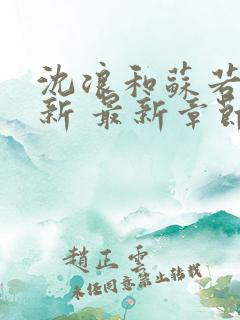 沈浪和蘇若
新 最新章節
趙正雲
未经同意禁止转载